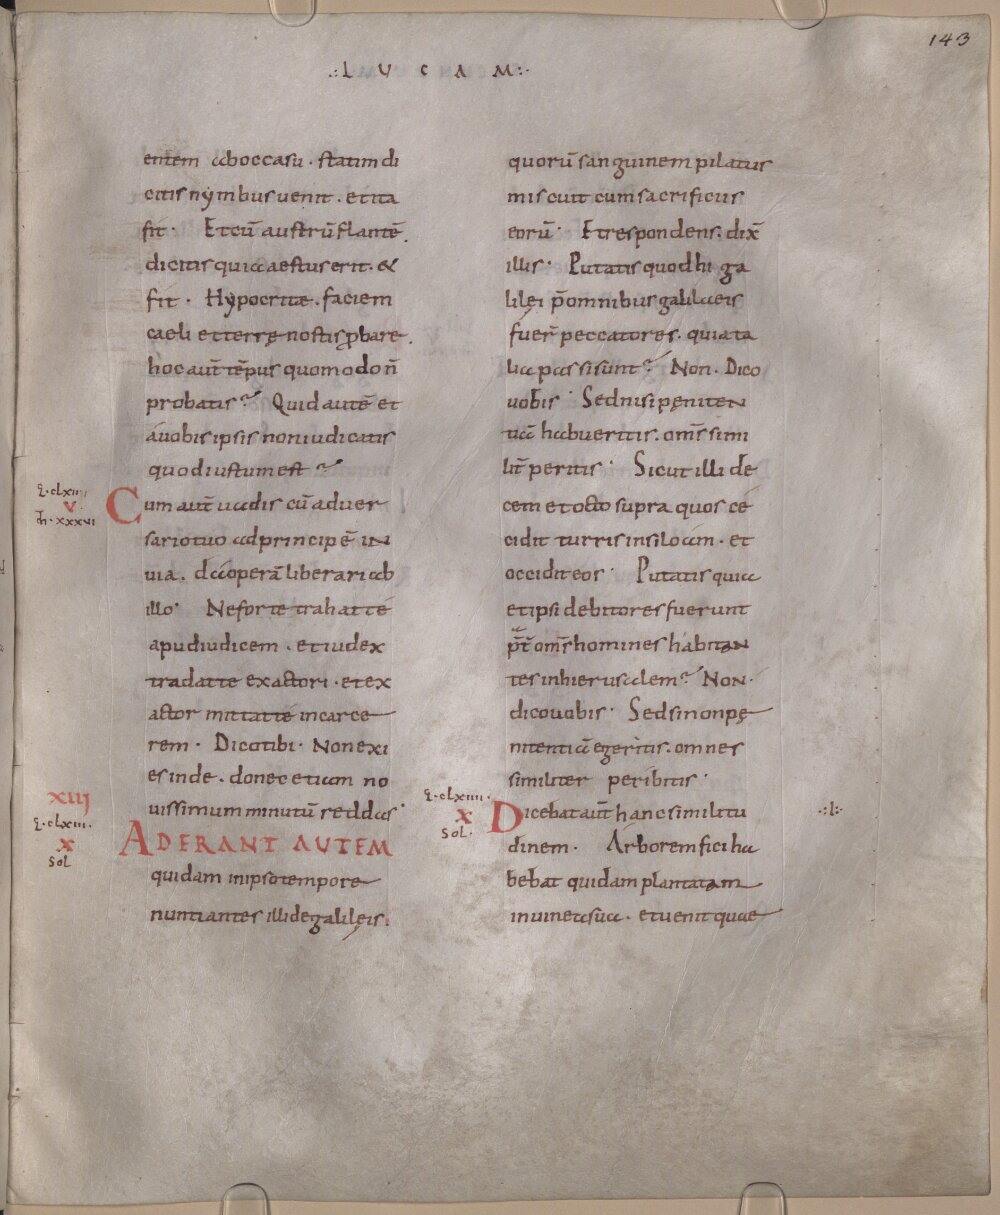 143
.:L U C A M:.
entem aboccasu . statim di
citis nymbus uenit . et ita
fit . Et cū austrū flantē .
dicitis quia aestus erit . &
fit . Hypocritae . faciem
caeli et terrę nostis p̄bare .
hoc aut̄ tēpus quomodo n̄
probatis? Quid autē et
áuobis ipsis non iudicatis
quod iustum est?
ꝗ . clxiii
V .
ꝳ . xxxvi
Cum aut̄ uadis cū aduer
sario tuo ad principē IN
uia . dáoperā liberari ab
illo . Ne forte trahat té
apud iudicem . et iudex
tradat te exactori . et ex
actor mittat té in carce
rem . Dico tibi . Non exi
es inde . donec etiam no
uissimum minutū reddas .
XIIJ
ꝗ . clxiii .
X
Sol
ADERANT AUTEM
quidam in ipso tempore
nuntiantes illi de galilęis .
quorū sanguinem pilatus
miscuit cum sacrificiis
eorū . Et respondens . dix̄
illis . Putatis quod hi ga
lilęi p̄ omnibus galilaeis
fuer̄ peccatores . quia ta
lia passi sunt? Non . Dico
uobis . Sed nisi pęniteN
tiā habueritis . om̄s simi
lit̄ peritis . Sicut illi dé
cem et octo supra quos cé
cidit turris in siloam . et
occidit eos . Putatis quia
et ipsi debitores fuerunt
p̄t̄ om̄s homines hábitaN
tes in hierusalem? NoN .
dico uobis . Sed si non pę
nitentiā egeritis . omnes
similiter peribitis .
ꝗ . clxiiii .
X
Sol .
Dicebat aut̄ hanc similitu
.:l:.
dinem . Arborem fici ha
bebat quidam plantatam
in uinea sua . et uenit quae